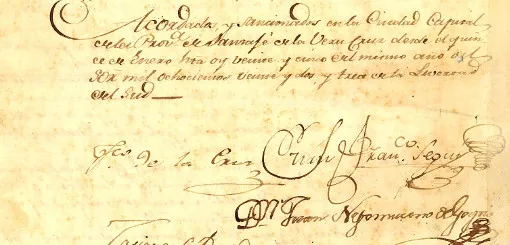 Acordados, y sancionados en la Ciudad Capital
de la Prov.ª de Santafé de la Vera Cruz desde el quin
ce de Enero hta oy veinte y cinco del mismo año de
mil ochocientos veinte y dos, y tres de la Livertad
del Sud
de la Cruz
Juan Fran.co Seguí
Juan Nepomuceno de Goytia